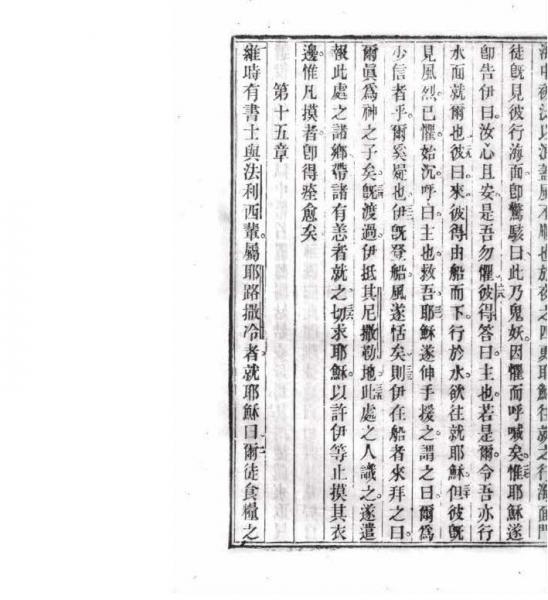 於夜之四更耶穌往就之行海面門
徒旣見彼行海面卽驚駭曰此乃鬼妖因懼而呼喊矣惟耶穌遂
卽告伊曰汝心且安是吾勿懼彼得答曰主也若是爾令吾亦行
水面就爾也彼曰來彼得由船而下行於水欲往就耶穌但彼旣
見風烈已懼始沉呼曰主也救吾耶穌遂伸手援之謂之曰爾爲
少信者乎爾奚疑也伊旣登船風遂恬矣則伊在船者來拜之曰
爾眞爲神之子矣旣渡過伊抵其尼撒勒地此處之人識之遂遣
報此處之諸鄉帶諸有恙者就之切求耶穌以許伊等止摸其衣
邊惟凡摸者卽得痊愈矣
第十五章
維時有書士與法利西輩屬耶路撒冷者就耶穌曰爾徒食糧之